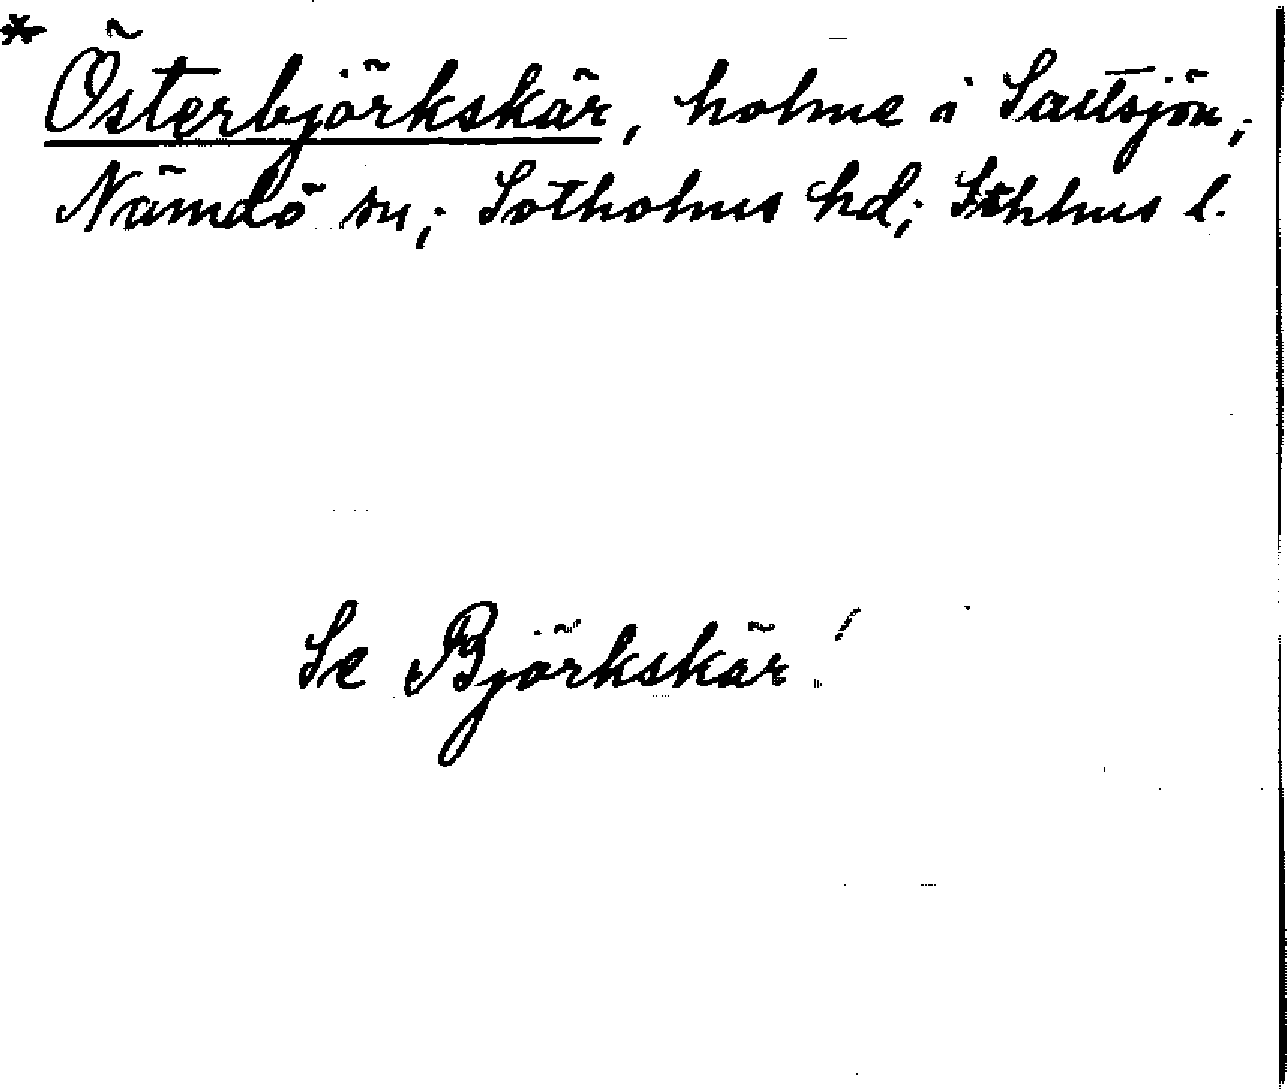 * Österbjörkskär, holme i Saltsjön;
Nämdö sn; Sotholms hd; Sthlms l.
Se Björkskär!